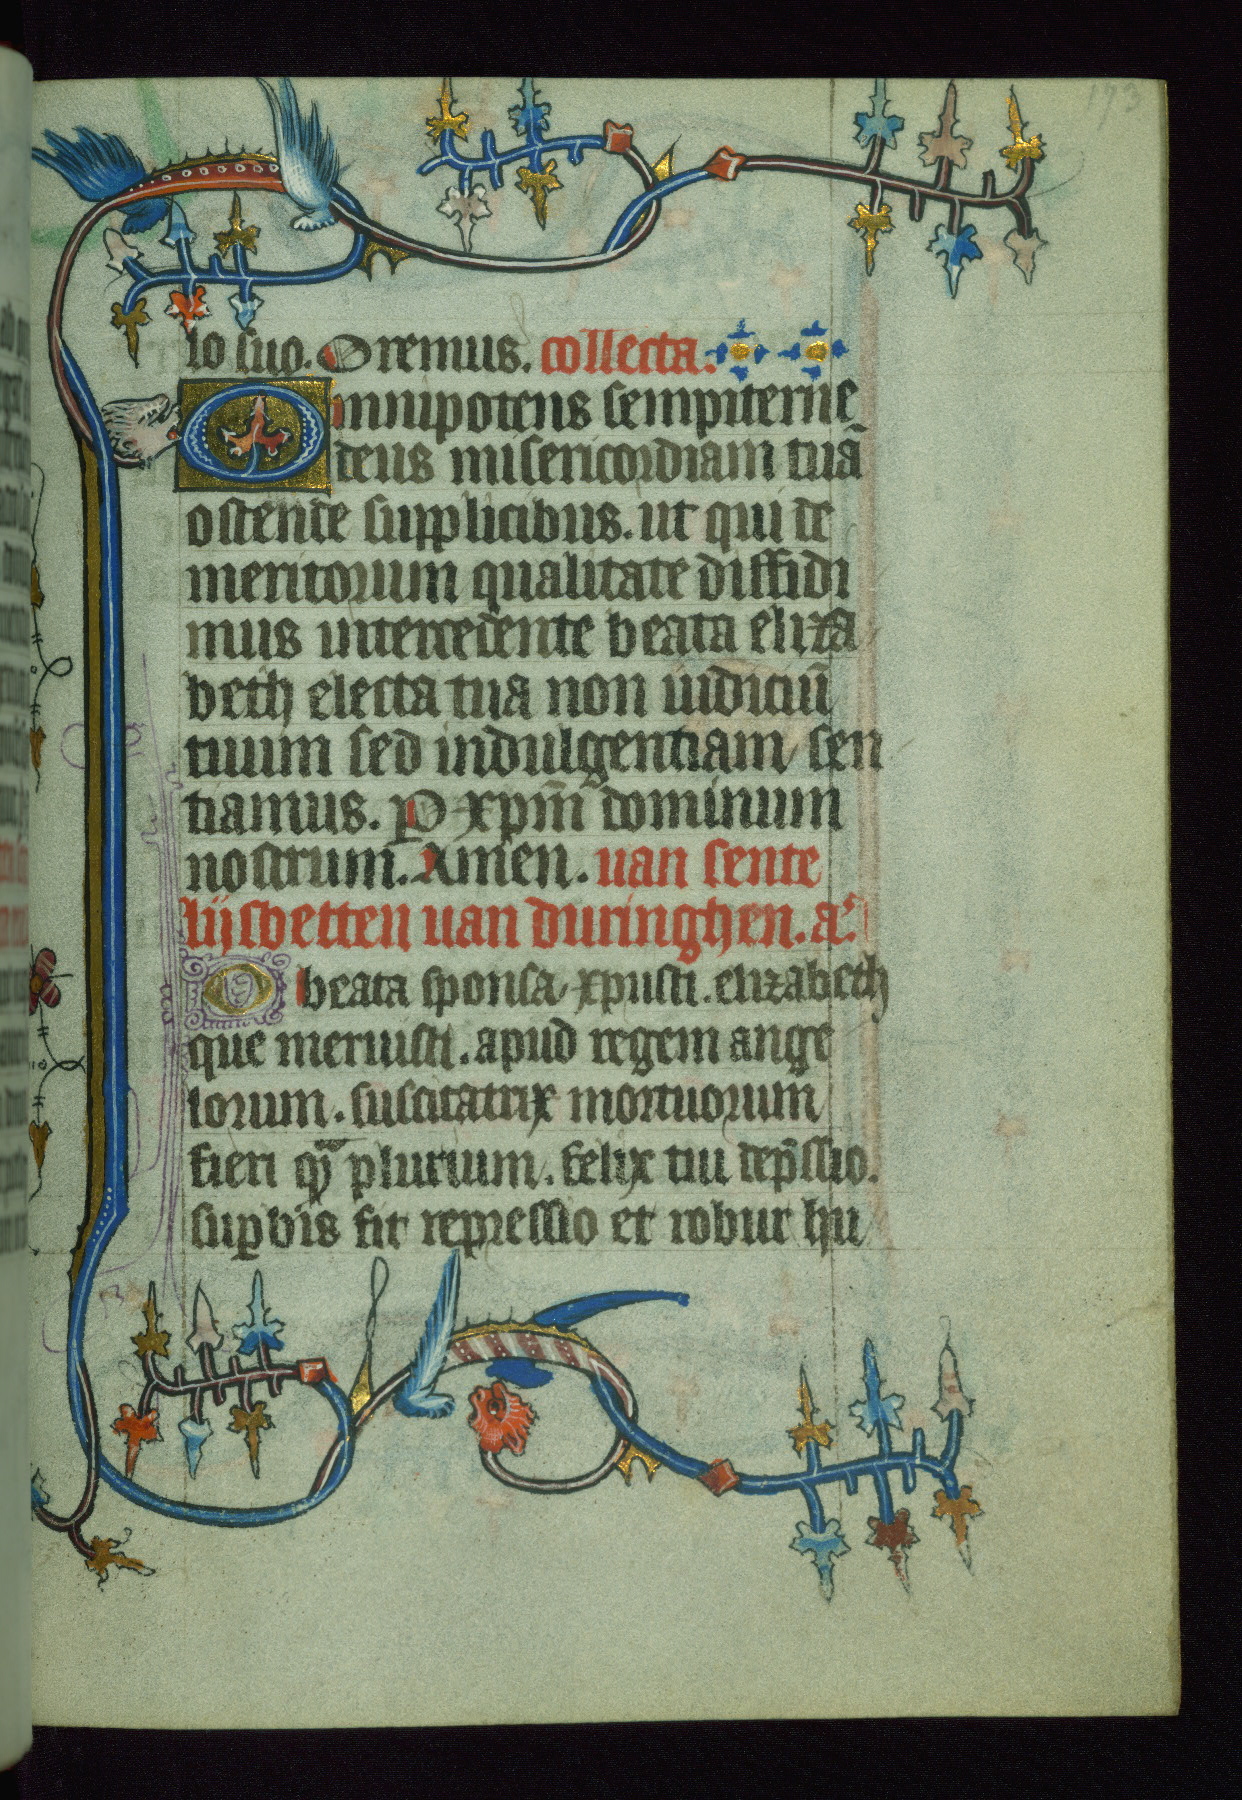 173
lo suo. Oremus. collecta.
Omnipotens sempiterne
deus misericordiam tuā
ostende supplicibus. ut qui de
meritorum qualitate diffidi
mus intercedente beata eliza
beth electa tua non iudiciū
tuum sed indulgentiam sen
tiamus. P xpm̄ dominum
nostrum. Amen. uan sente
lijsbetten uan duringhen. a.
O beata sponsa xpristi. elizabeth
que meruisti. apud regem ange
lorum. suscitatrix mortuorum
fieri plurium. felix tui dep̄ssio.
sup̱bis fit repressio et robur hu